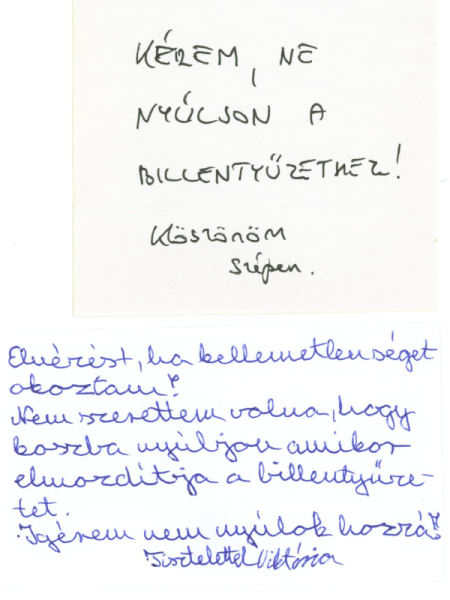 KÉREM, NE
NYÚLJON A
BILLENTYŰZETHEZ!
Köszönöm
szépen.
Elnézést, ha kellemetlenséget
okoztam!
Nem szerettem volna, hogy
koszba nyúljon amikor
elmozdítja a billentyűze-
tet.
Igérem nem nyúlok hozzá!
Tisztelettel Viktória